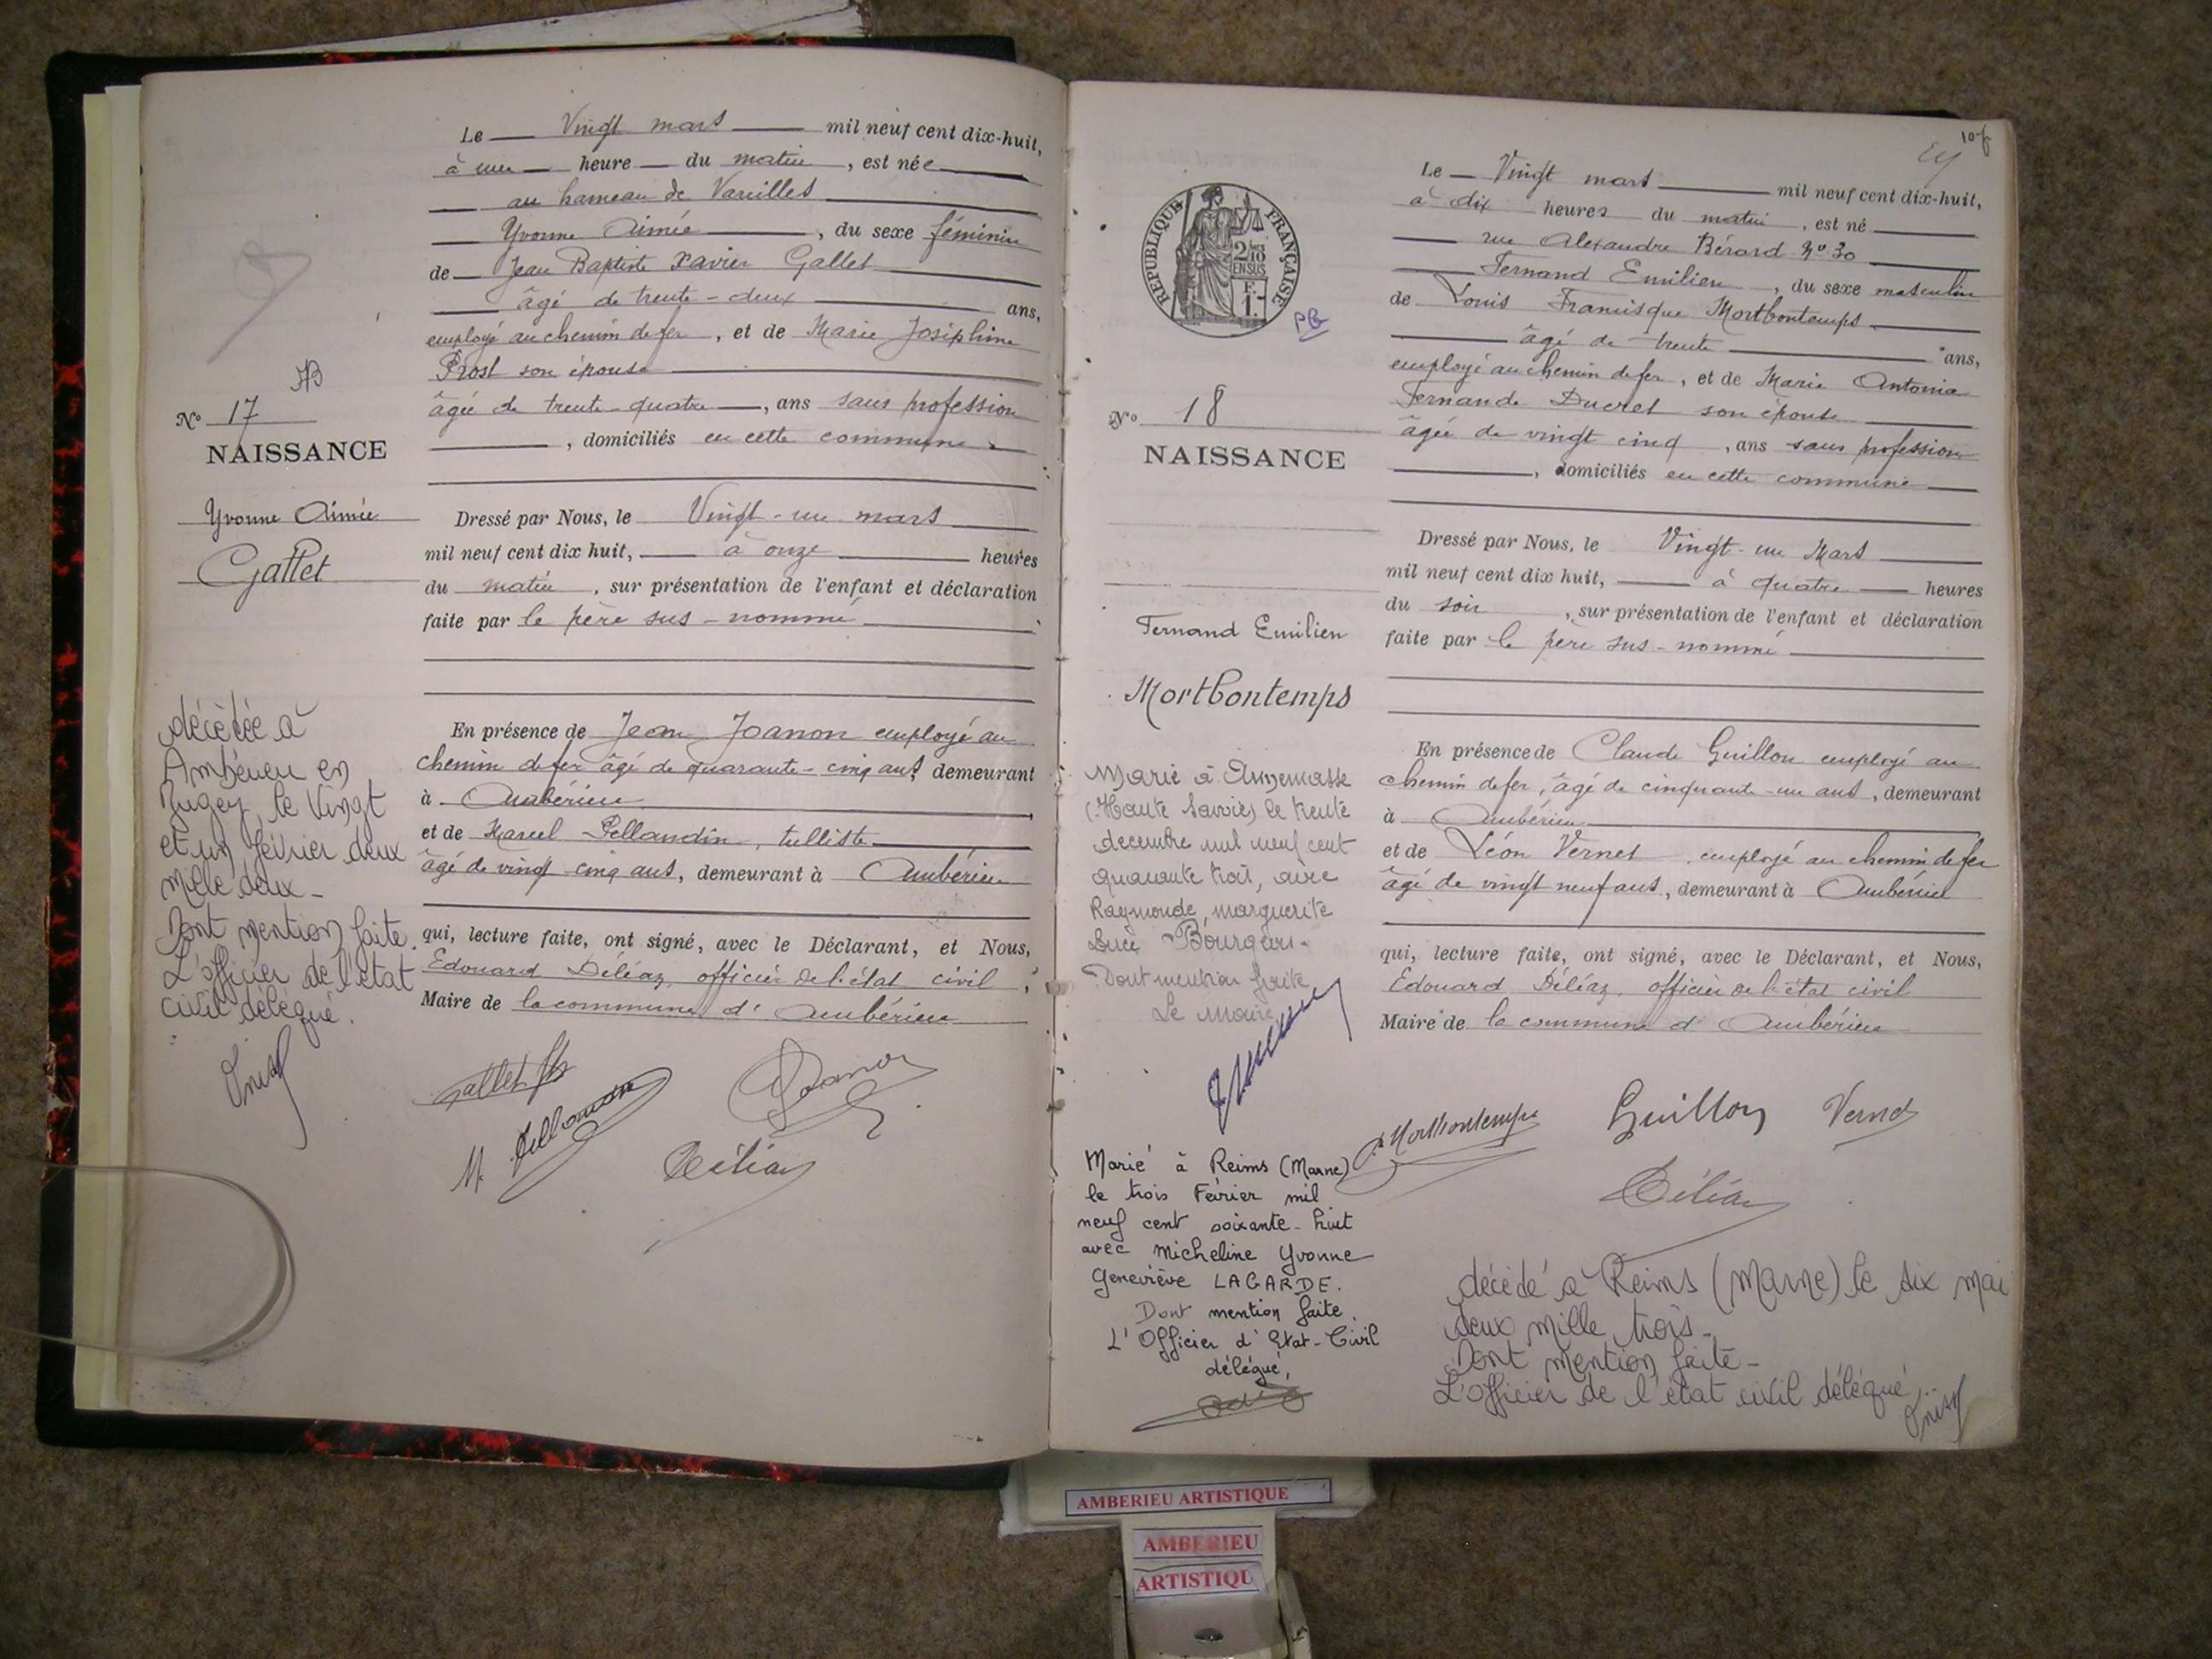 Le Vingt mars mil neuf cent dix-huit,
à une heure du matin, est née
au hameau de Vareilles
Yvonne Aimée, du sexe féminin
de Jean Baptiste Xavier Gallet
âgé de trente-deux ans,
employé au chemin de fer, et de Marie Joséphine
Prost son épouse
âgée de trente-quatre, ans sans profession
, domiciliés en cette commune.
N° 17
NAISSANCE
Yvonne Aimée
Gallet
Dressé par Nous, le Vingt-un mars
mil neuf cent dix huit, à onze heures
du matin, sur présentation de l'enfant et déclaration
faite par le père sus-nommé
En présence de Jean Joanon employé au
chemin de fer âgé de quarante-cinq ans, demeurant
à Ambérieu
et de Marcel Pellaudin, tulliste
âgé de vingt cinq ans, demeurant à Ambérieu
qui, lecture faite, ont signé, avec le Déclarant, et Nous,
Edouard Déléaz, officier de l'état civil,
Maire de la commune d'Ambérieu
décédée à
Ambérieu en
Bugey, le vingt
et un février deux
mille deux-
Dont mention faite.
L'officier de l'état
civil délégué.
Gallet
Joanon
M. Pellaudin
Déléaz
107
RÉPUBLIQUE FRANÇAISE
2/10
EN SUS
F.
1.
PB
Le Vingt mars mil neuf cent dix-huit,
à dix heures du matin, est né
rue Alexandre Bérard n° 30
Fernand Emilien, du sexe masculin
de Louis Francisque Mortbontemps
âgé de trente ans,
employé au chemin de fer, et de Marie Antonia
Fernande Ducret son épouse
âgée de vingt cinq, ans sans profession
, domiciliés en cette commune
N° 18
NAISSANCE
Fernand Emilien
Mortbontemps
Dressé par Nous, le Vingt-un Mars
mil neuf cent dix huit, à quatre heures
du soir, sur présentation de l'enfant et déclaration
faite par le père sus-nommé
En présence de Claude Guillon employé au
chemin de fer, âgé de cinquante-un ans, demeurant
à Ambérieu
et de Léon Vernet, employé au chemin de fer
âgé de vingt neuf ans, demeurant à Ambérieu
qui, lecture faite, ont signé, avec le Déclarant, et Nous,
Edouard Déléaz, officier de l'état civil
Maire de la commune d'Ambérieu
Marié à Annemasse
(Haute Savoie) le trente
decembre mil neuf cent
quarante trois, avec
Raymonde, marguerite
Luce Bourgeois-
Dont mention faite
Le Maire
Mortbontemps
Guillon
Vernet
Déléaz
Marié à Reims (Marne)
le trois Février mil
neuf cent soixante-huit
avec Micheline Yvonne
Geneviève LAGARDE.
Dont mention faite,
L'Officier d'Etat-Civil
délégué,
décédé à Reims (Marne) le six mai
deux mille trois-
Dont mention faite-
L'officier de l'état civil délégué
AMBERIEU ARTISTIQUE
AMBERIEU
ARTISTIQU